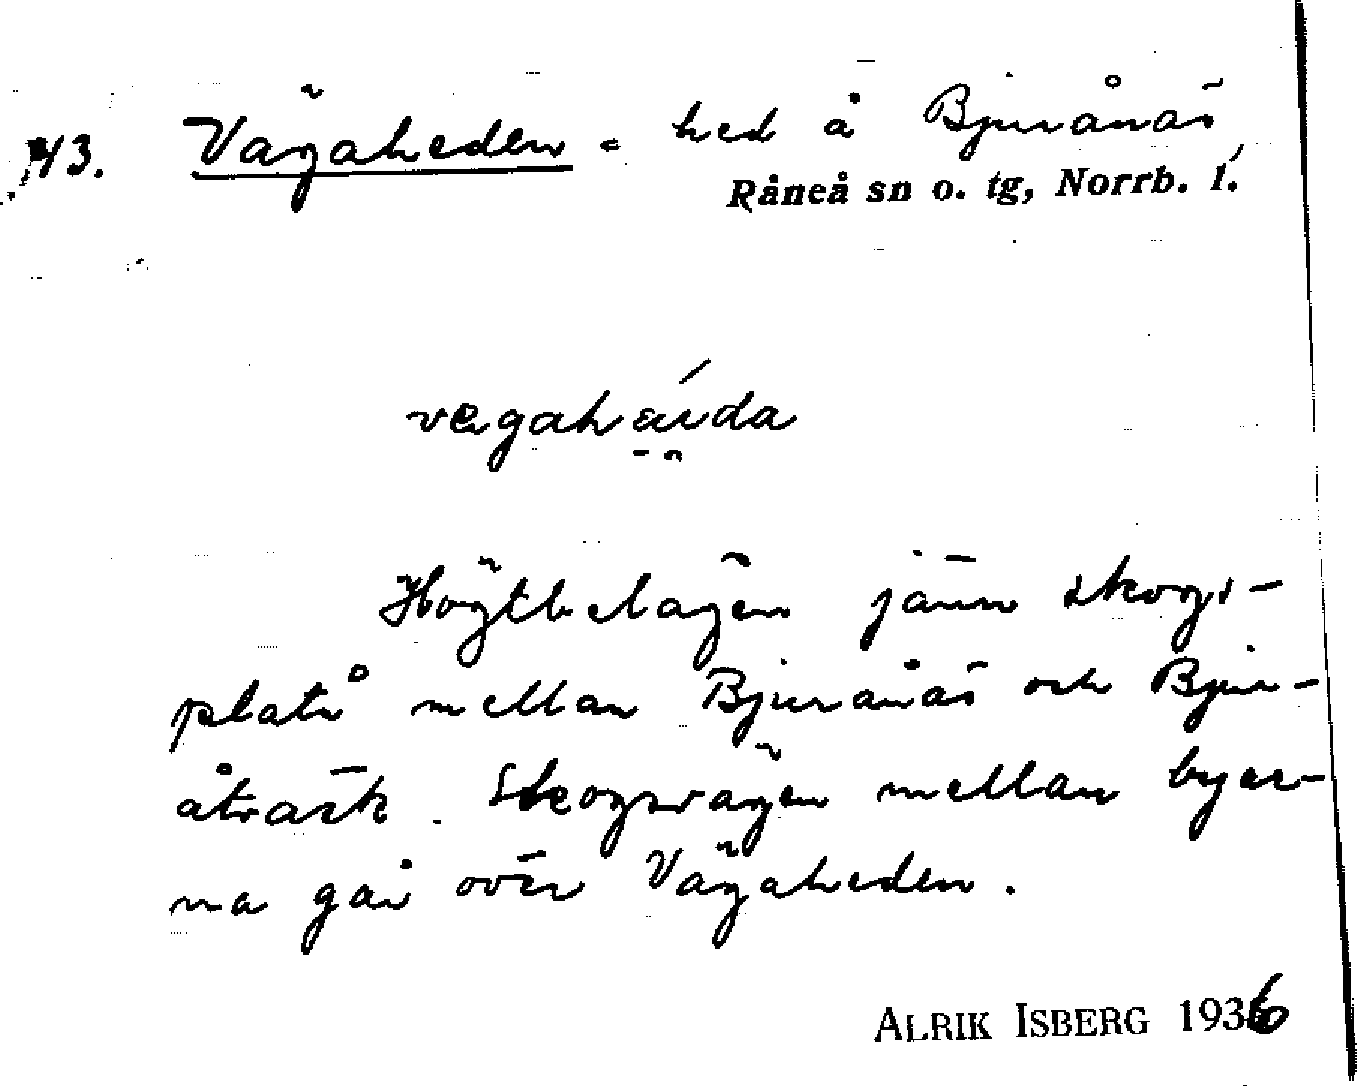 43. Vägaheden - hed å Bjurånäs
Råneå sn o. tg, Norrb. l.
vægahæida
Högtbelägen jämn skogs-
platå mellan Bjurånäs och Bjur-
åträsk. Skogsvägen mellan byar-
na går över Vägaheden.
ALRIK ISBERG 1936